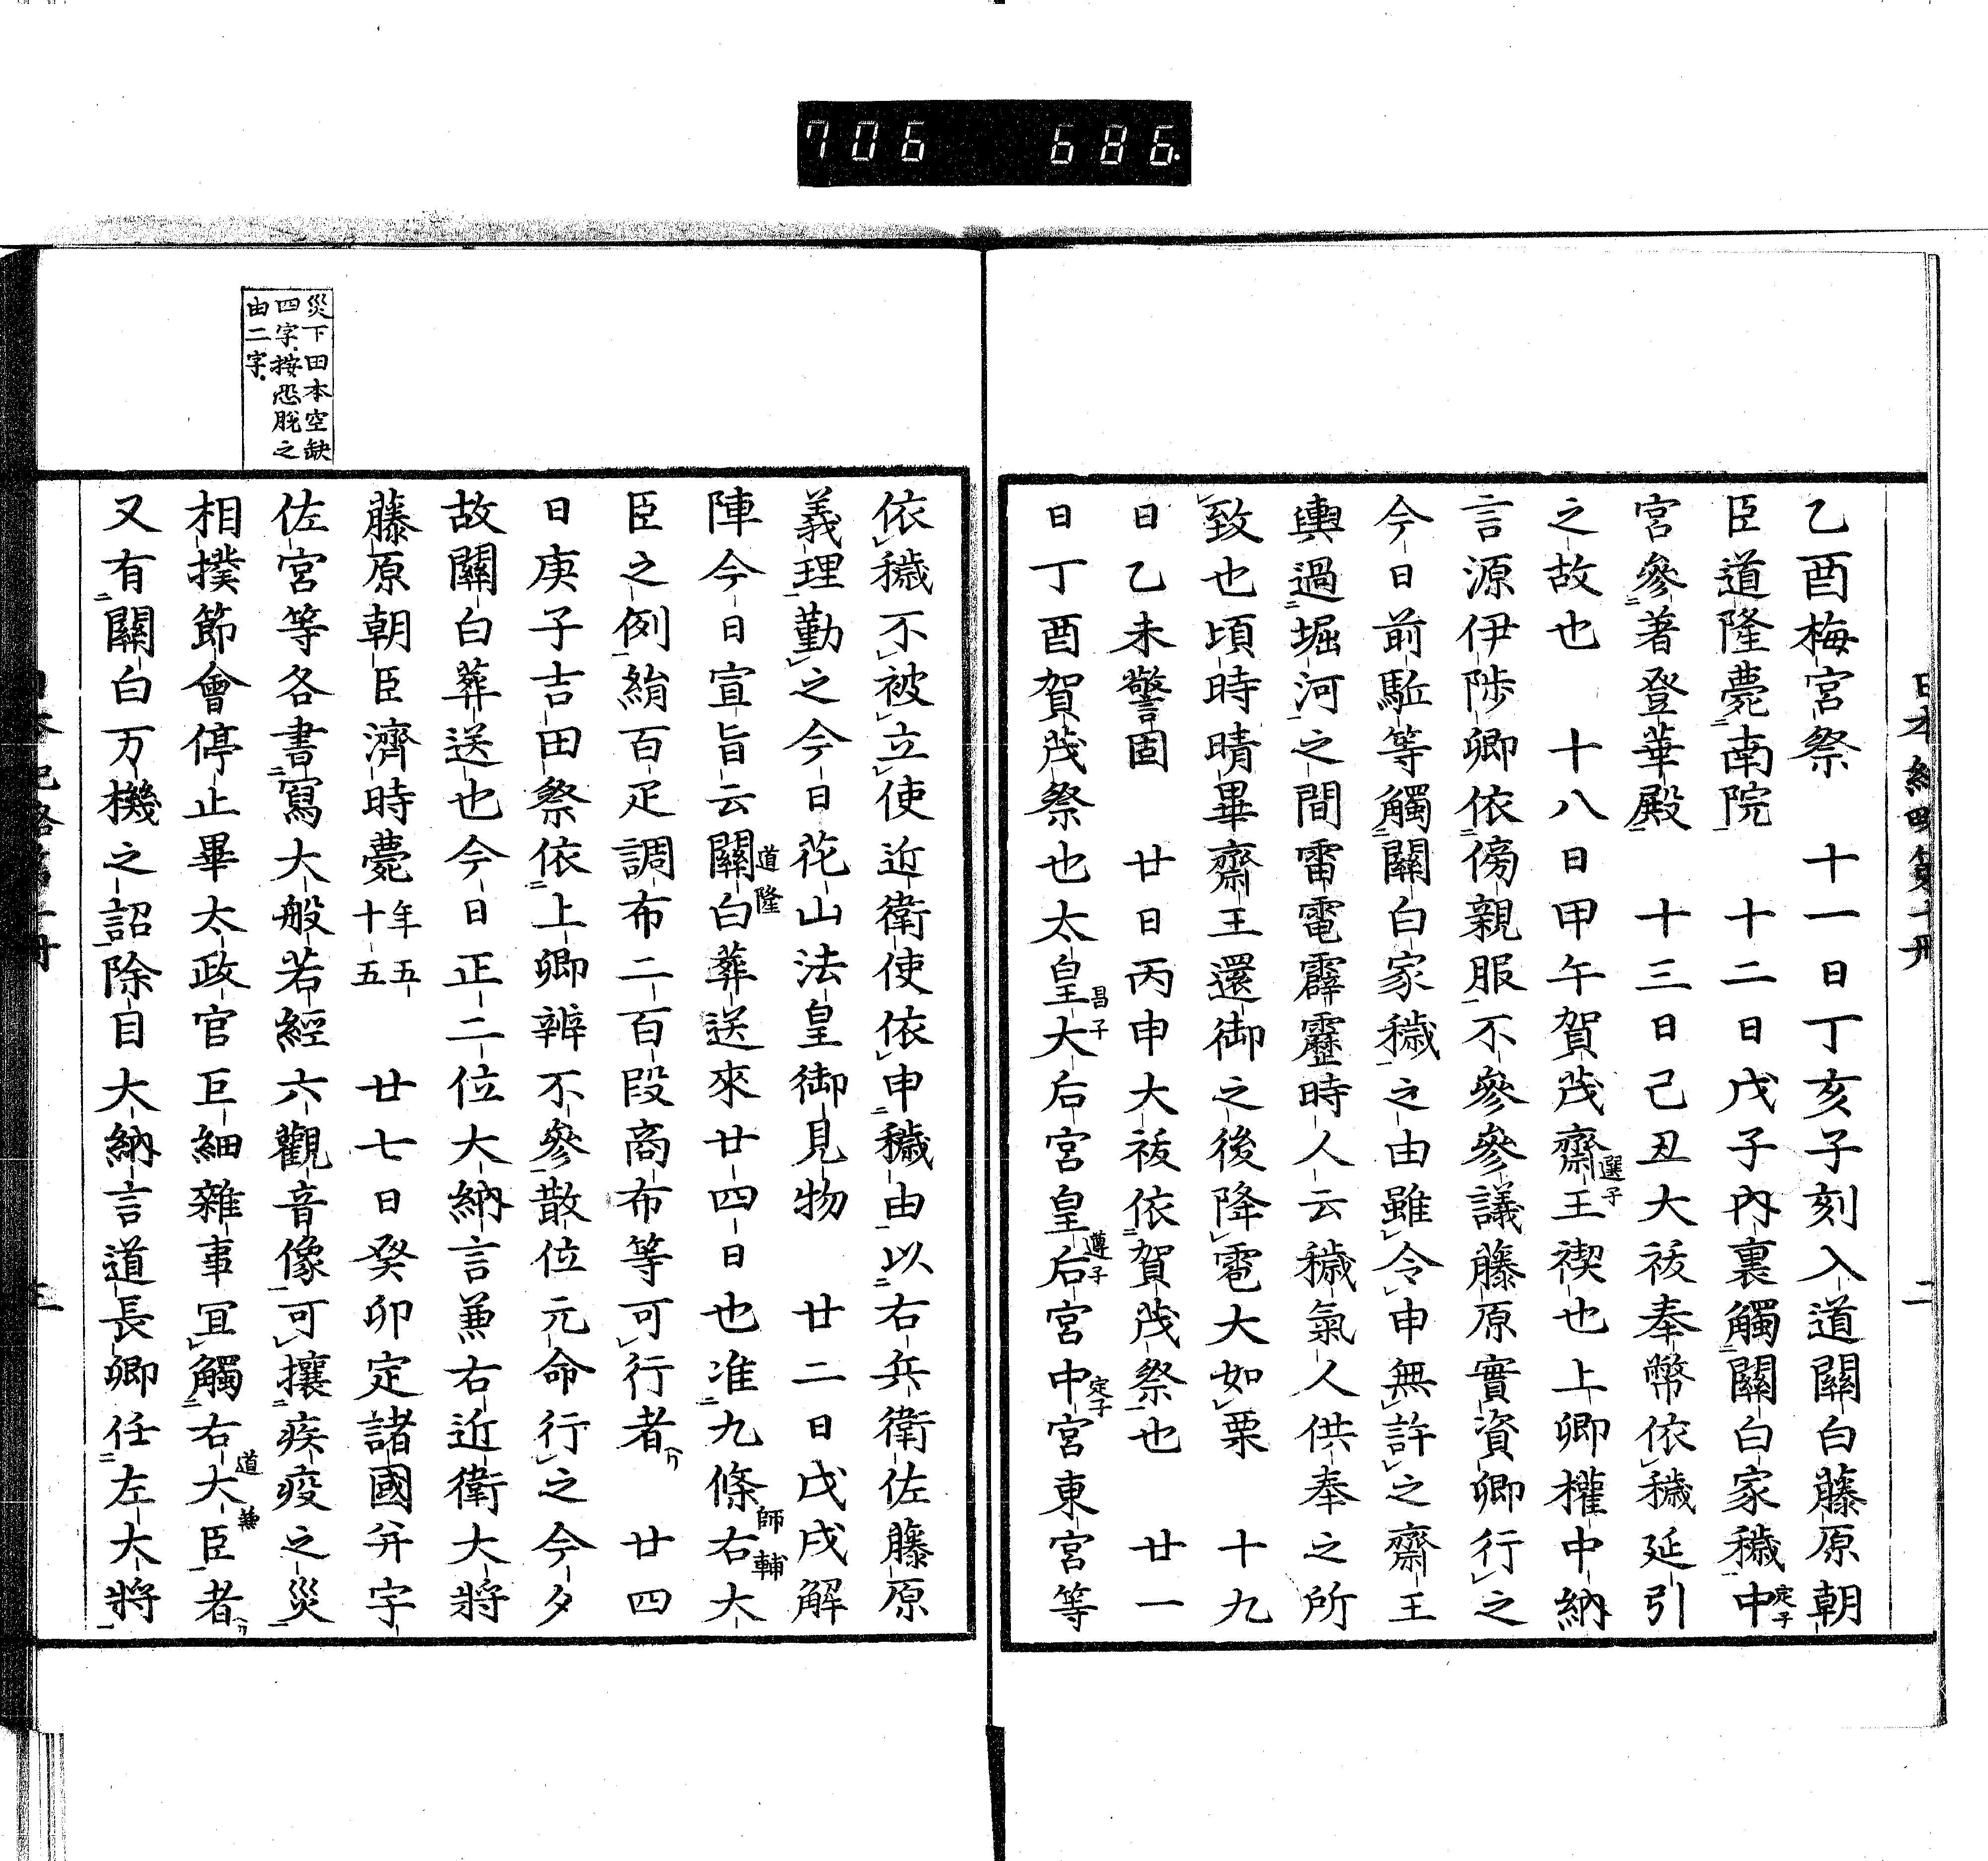 706 686.
乙酉梅宮祭　十一日丁亥子刻入道關白藤原朝
臣道隆薨南院　十二日戊子內裏觸關白家穢中定子
宮參著登華殿　十三日己丑大祓奉幣依穢延引
之故也　十八日甲午賀茂齋王選子禊也上卿權中納
言源伊陟卿依傍親服不參參議藤原實資卿行之
今日前駈等觸關白家穢之由雖令申無許之齋王
輿過堀河之間雷電霹靂時人云穢氣人供奉之所
致也頃時晴畢齋王還御之後降雹大如栗　十九
日乙未警固　廿日丙申大祓依賀茂祭也　廿一
日丁酉賀茂祭也太皇大昌子后宮皇后遵子宮中宮定子東宮等
依穢不被立使近衛使依申穢由以右兵衛佐藤原
義理勤之今日花山法皇御見物　廿二日戊戌解
陣今日宣旨云關白道隆葬送來廿四日也准九條右大師輔
臣之例絹百疋調布二百段商布等可行者　廿四
日庚子吉田祭依上卿辨不參散位元命行之今夕
故關白葬送也今日正二位大納言兼右近衛大將
藤原朝臣濟時薨年五十五　廿七日癸卯定諸國幷宇
佐宮等各書寫大般若經六觀音像可攘疾疫之災
相撲節會停止畢太政官巨細雜事宜觸右大臣道兼者
又有關白万機之詔除目大納言道長卿任左大將
災下田本空缺
四字按恐脫之
由二字